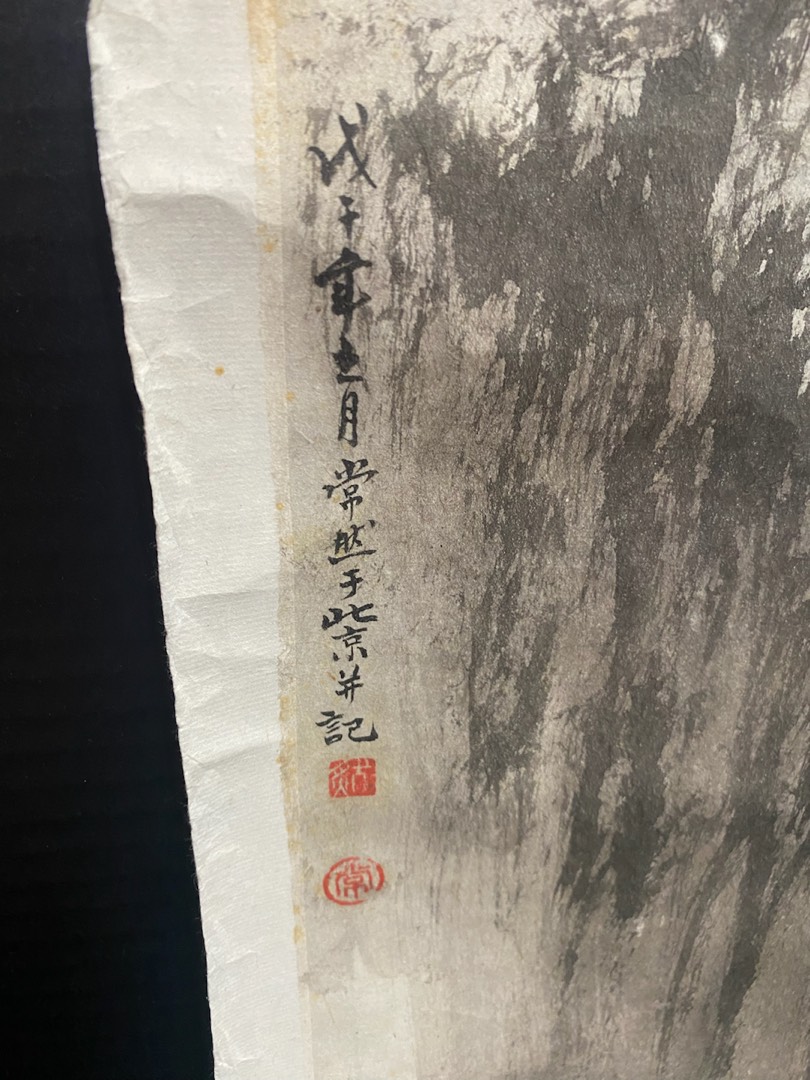 戊子年五月常然于北京并記
常